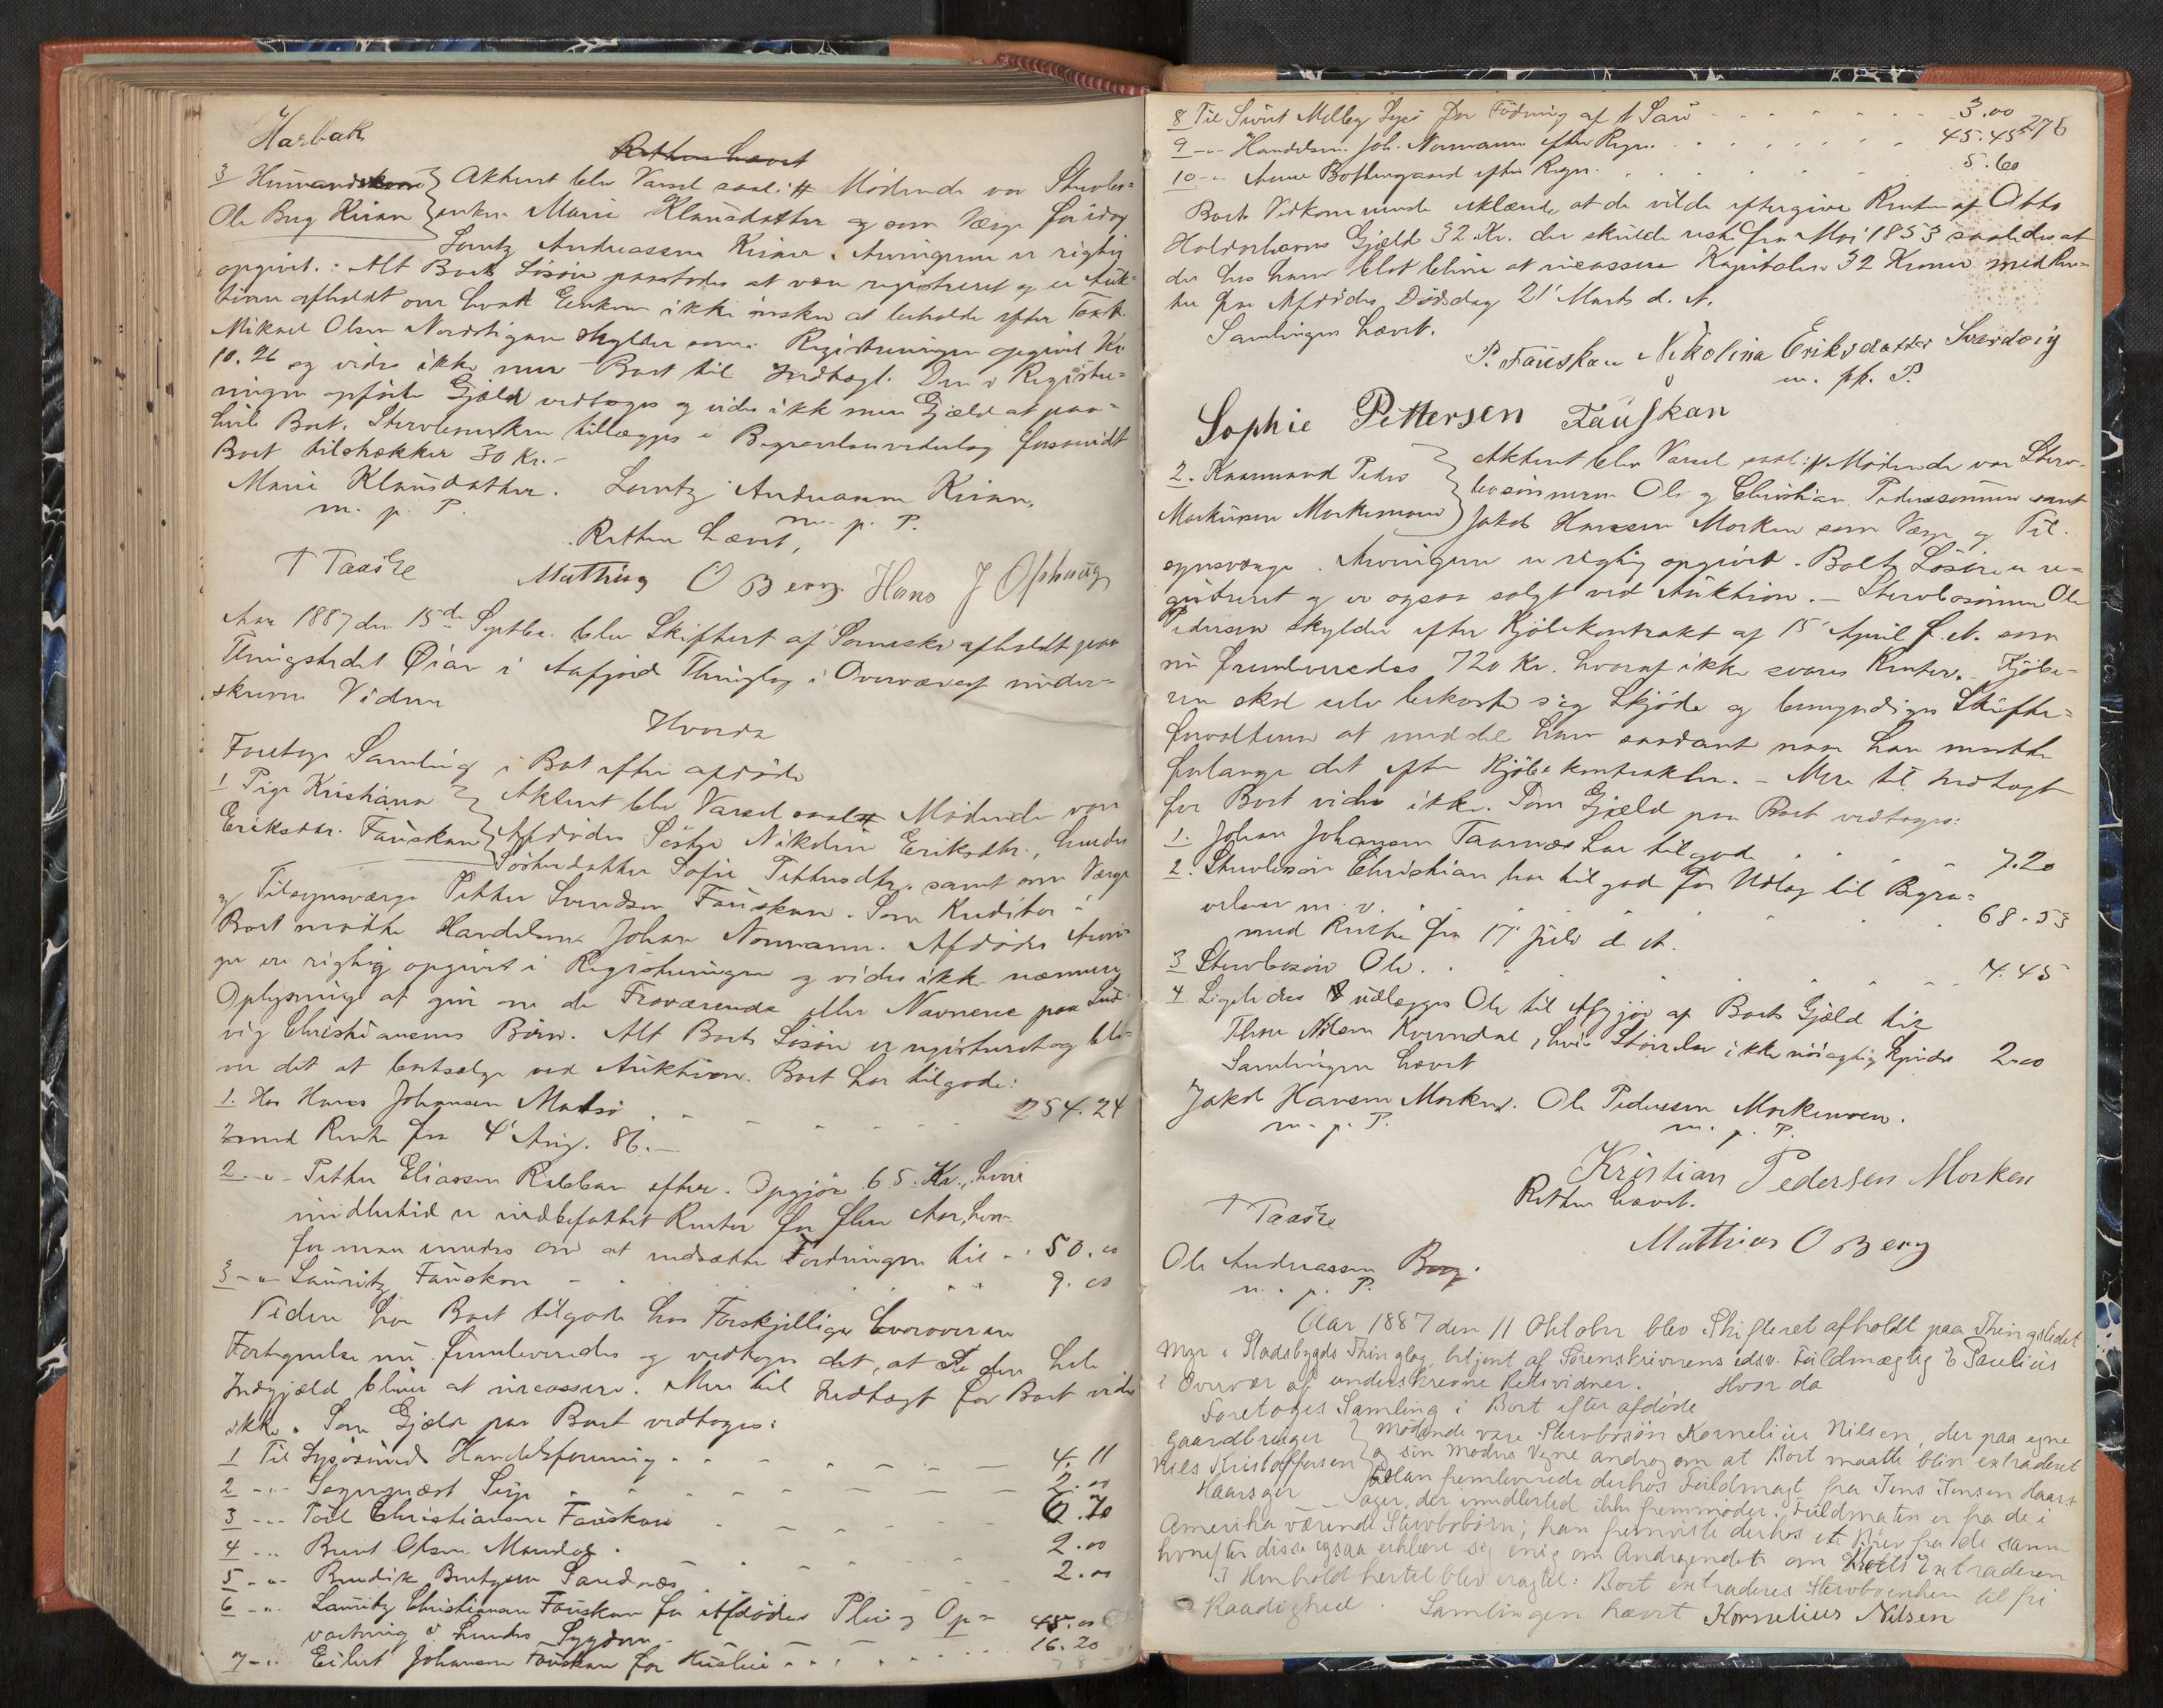 Harbak
Retten hævet
3 Huusmand
Ole Berg Kiran
Aktent blev Varsel saal: # Mødende var Stervbo-
enken Marie Klausdatter og som Værge for idag
Lorentz Andreassen Kiran. Arvingerne er rigtig
opgivet. Alt Boets Løsøre paastodes at være registreret og er Auk-
tion afholdt over hvad Enken ikke ønsker at beholde efter Taxt.
Mikael Olsen Nordstigen skylder som i Registreringen opgivet Kr
10.26 og vides ikke mere Boet til Indtægt. Den i Registre-
ringen opførte Gjæld vedtoges og vides ikke mere Gjæld at paa-
hvile Boet. Stervboenken tillægges i Begravelsesvederlag forsaavidt
Boet tilstrækker 30 Kr.-
Marie Klausdatter. Lorentz Andreassen Kiran.
m. p. P. m. p. P.
Retten hævet,
T Taaske Matthias O Berg Hans J Ophaug
Aar 1887 den 15de Septbr. blev Skifteret af Sorenskr afholdt paa
Thingstedet Øian i Aafjord Thinglag i Overvær af under-
skrevne Vidner
Hvorda
Foretoges Samling i Boet efter afdøde
1 Pige Kristiana
Eriksdtr. Fauskan
Aktent blev Varsel saal # Mødende var
Afdødes Søster Nikolina Eriksdtr., hendes
Søsterdatter Sofie Pettersdtr. samt som Værge
og Tilsynsværge Petter Svendsen Fauskan. Som Kreditor i
Boet mødte Handelsm. Johan Normann. Afdødes Arvin-
ger ere rigtig opgivet i Registreringen og vides ikke nærmere
Oplysning at give om de Fraværende eller Navnene paa Lud-
vig Christiansens Børn. Alt Boets Løsøre er registreret og bli-
ver det at bortsælge ved Auktion. Boet har tilgode:
1. Hos Hans Johansen Madsø 254.24
med Rente fra 4' Aug. 86.-
2 -"- Petter Eliassen Rabben efter Opgjør 65. Kr., hvori
imidlertid er indbefattet Renter for flere Aar, hvor-
for man enedes om at nedsætte Fordringen til 50.00
3 -"- Lauritz Fauskan 9.00
Videre har Boet tilgode hos Forskjellige hvorover en
Fortegnelse nu fremleveredes og vedtoges det, at den hele
Indgjæld bliver at incassere. Mere til Indtægt for Boet vides
ikke. Som Gjæld paa Boet vedtoges:
1 Til Lysøsund Handelsforening 4.11
2 -"- Sognepræst 2.00
3 -"- Christiansen Fauskan 6.70
4 -"- Bernt Olsen 2.00
5 -"- 2.00
6 -"- Lauritz Christiansen Fauskan for Afdødes Pleie og Op-
vartning i hendes Sygdom 45.00
7 -"- Eilert Johansen Fauskan for Huusleie 16.20
278
8 Til Sivert Melbey Lysø for Fødning af 1 Sau 3.00
9 -"- Handelsm. Joh. Normann efter Regn. 45.45
10 -"- Anne efter Regn. 5.60
Boets Vedkommende erklærede at de vilde eftergive Renten af Otto
Gjæld 32 Kr. der skulde reste fra Mai 1853 saaledes at
der hos ham blot bliver at incassere Kapitalen 32 Kroner med Ren-
ter fra Afdødes Dødsdag 21' Marts d. A.
Samlingen hævet.
P. Fauskan Nikolina Eriksdatter Sverdvig
m. p. P.
Sophie Pettersen Fauskan
2. Kaarmand Peder
Markussen Morkemoen
Aktent blev Varsel saal: # Mødende var Sterv-
bosønnerne Ole og Christian Pederssønner samt
Jakob Hansen Morken som Værge og Til-
synsværge. Arvingerne er rigtig opgivet. Boets Løsøre er re-
gistreret og er ogsaa solgt ved Auktion. - Stervbosønnen Ole
Pedersen skylder efter Kjøbekontrakt af 15' April f. A. som
nu fremleveredes 720 Kr. hvoraf ikke svares Renter. - Kjøbe-
ren skal selv bekoste sig Skjøde og bemyndiges Skifte-
forvalteren at meddele ham saadant naar han maatte
forlange det efter Kjøbekontrakten. - Mere til Indtægt
for Boet vides ikke. Som Gjæld paa Boet vedtoges:
1. Johan Johansen Taarnæs har tilgode 7.20
2. Stervbosøn Christian har tilgode for Udlæg til Begra-
velsen m. v. 68.53
med Rente fra 17' Juli d. A.
3 Stervbosøn Ole 4.45
4 Ligeledes udlægges Ole til Afgjør af Boets Gjæld til
Thore Nilsen Kvenndal, hvis Størrelse ikke nøiagtig kjendes 2.00
Samlingen hævet
Jakob Hansen Morken. Ole Pederssen Morkemoen.
m. p. P. m. p. P.
Kristian Pedersen Morken
Retten hævet.
T Taaske
Matthias O Berg
Ole Andreassen Berg.
m. p. P.
Aar 1887 den 11 Oktober blev Skifteret afholdt paa Thingstedet
Myr i Stadsbygds Thinglag, betjent af Sorenskriverens edsv. Fuldmægtig E Paulius
i Overvær af underskrevne Retsvidner. Hvor da
Foretoges Samling i Boet efter afdøde
Gaardbruger
Nils Kristoffersen
Haarsger
Mødende vare Stervbosøn Kornelius Nilsen, der paa egne
og sin Moders Vegne androg om at Boet maatte blive extraderet
Han fremleverede derhos Fuldmagt fra Jens Jensen Haars-
ager, der imidlertid ikke fremmøder. Fuldmagten er fra de i
Amerika værende Stervbobørn; han fremviste derhos et Brev fra de samme
hvorefter disse ogsaa erklære sig enig om Andragendet om Boets Extraderen
I Henhold hertil blev eragtet: Boet extraderes Stervboenken til fri
Raadighed. Samlingen hævet Kornelius Nilsen